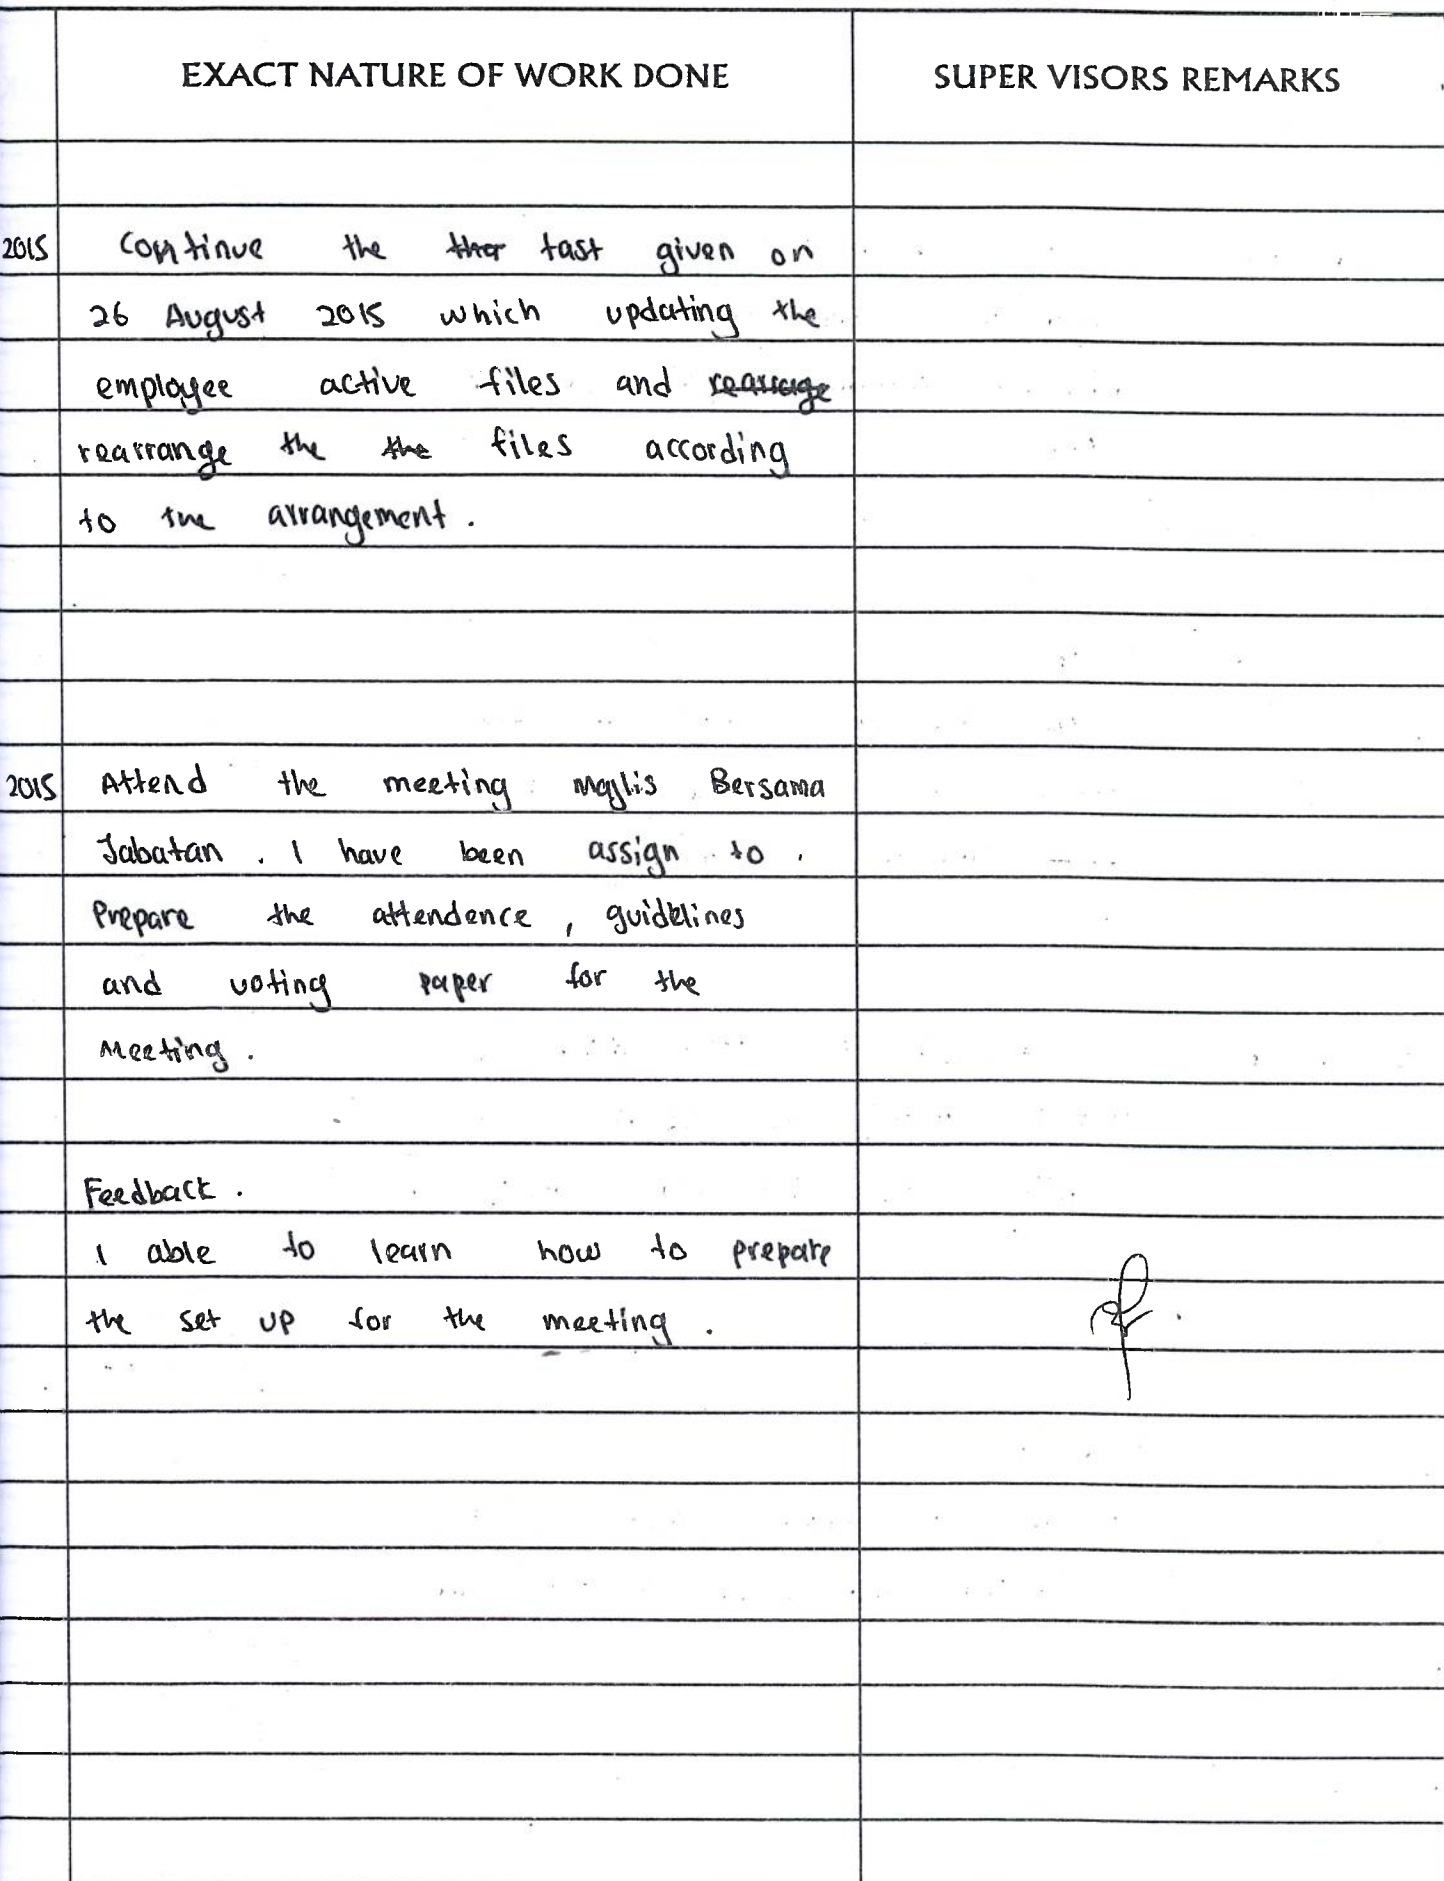 EXACT NATURE OF WORK DONE SUPER VISORS REMARKS
2015 Continue the ther tast given on
26 August 2015 which updating the
employee active files and rearrage
rearrange the the files according
to the arrangement.
2015 Attend the meeting Majlis Bersama
Jabatan. I have been assign to
Prepare the attendence, guidelines
and voting paper for the
Meeting.
Feedback.
I able to learn how to prepare
the set up for the meeting.